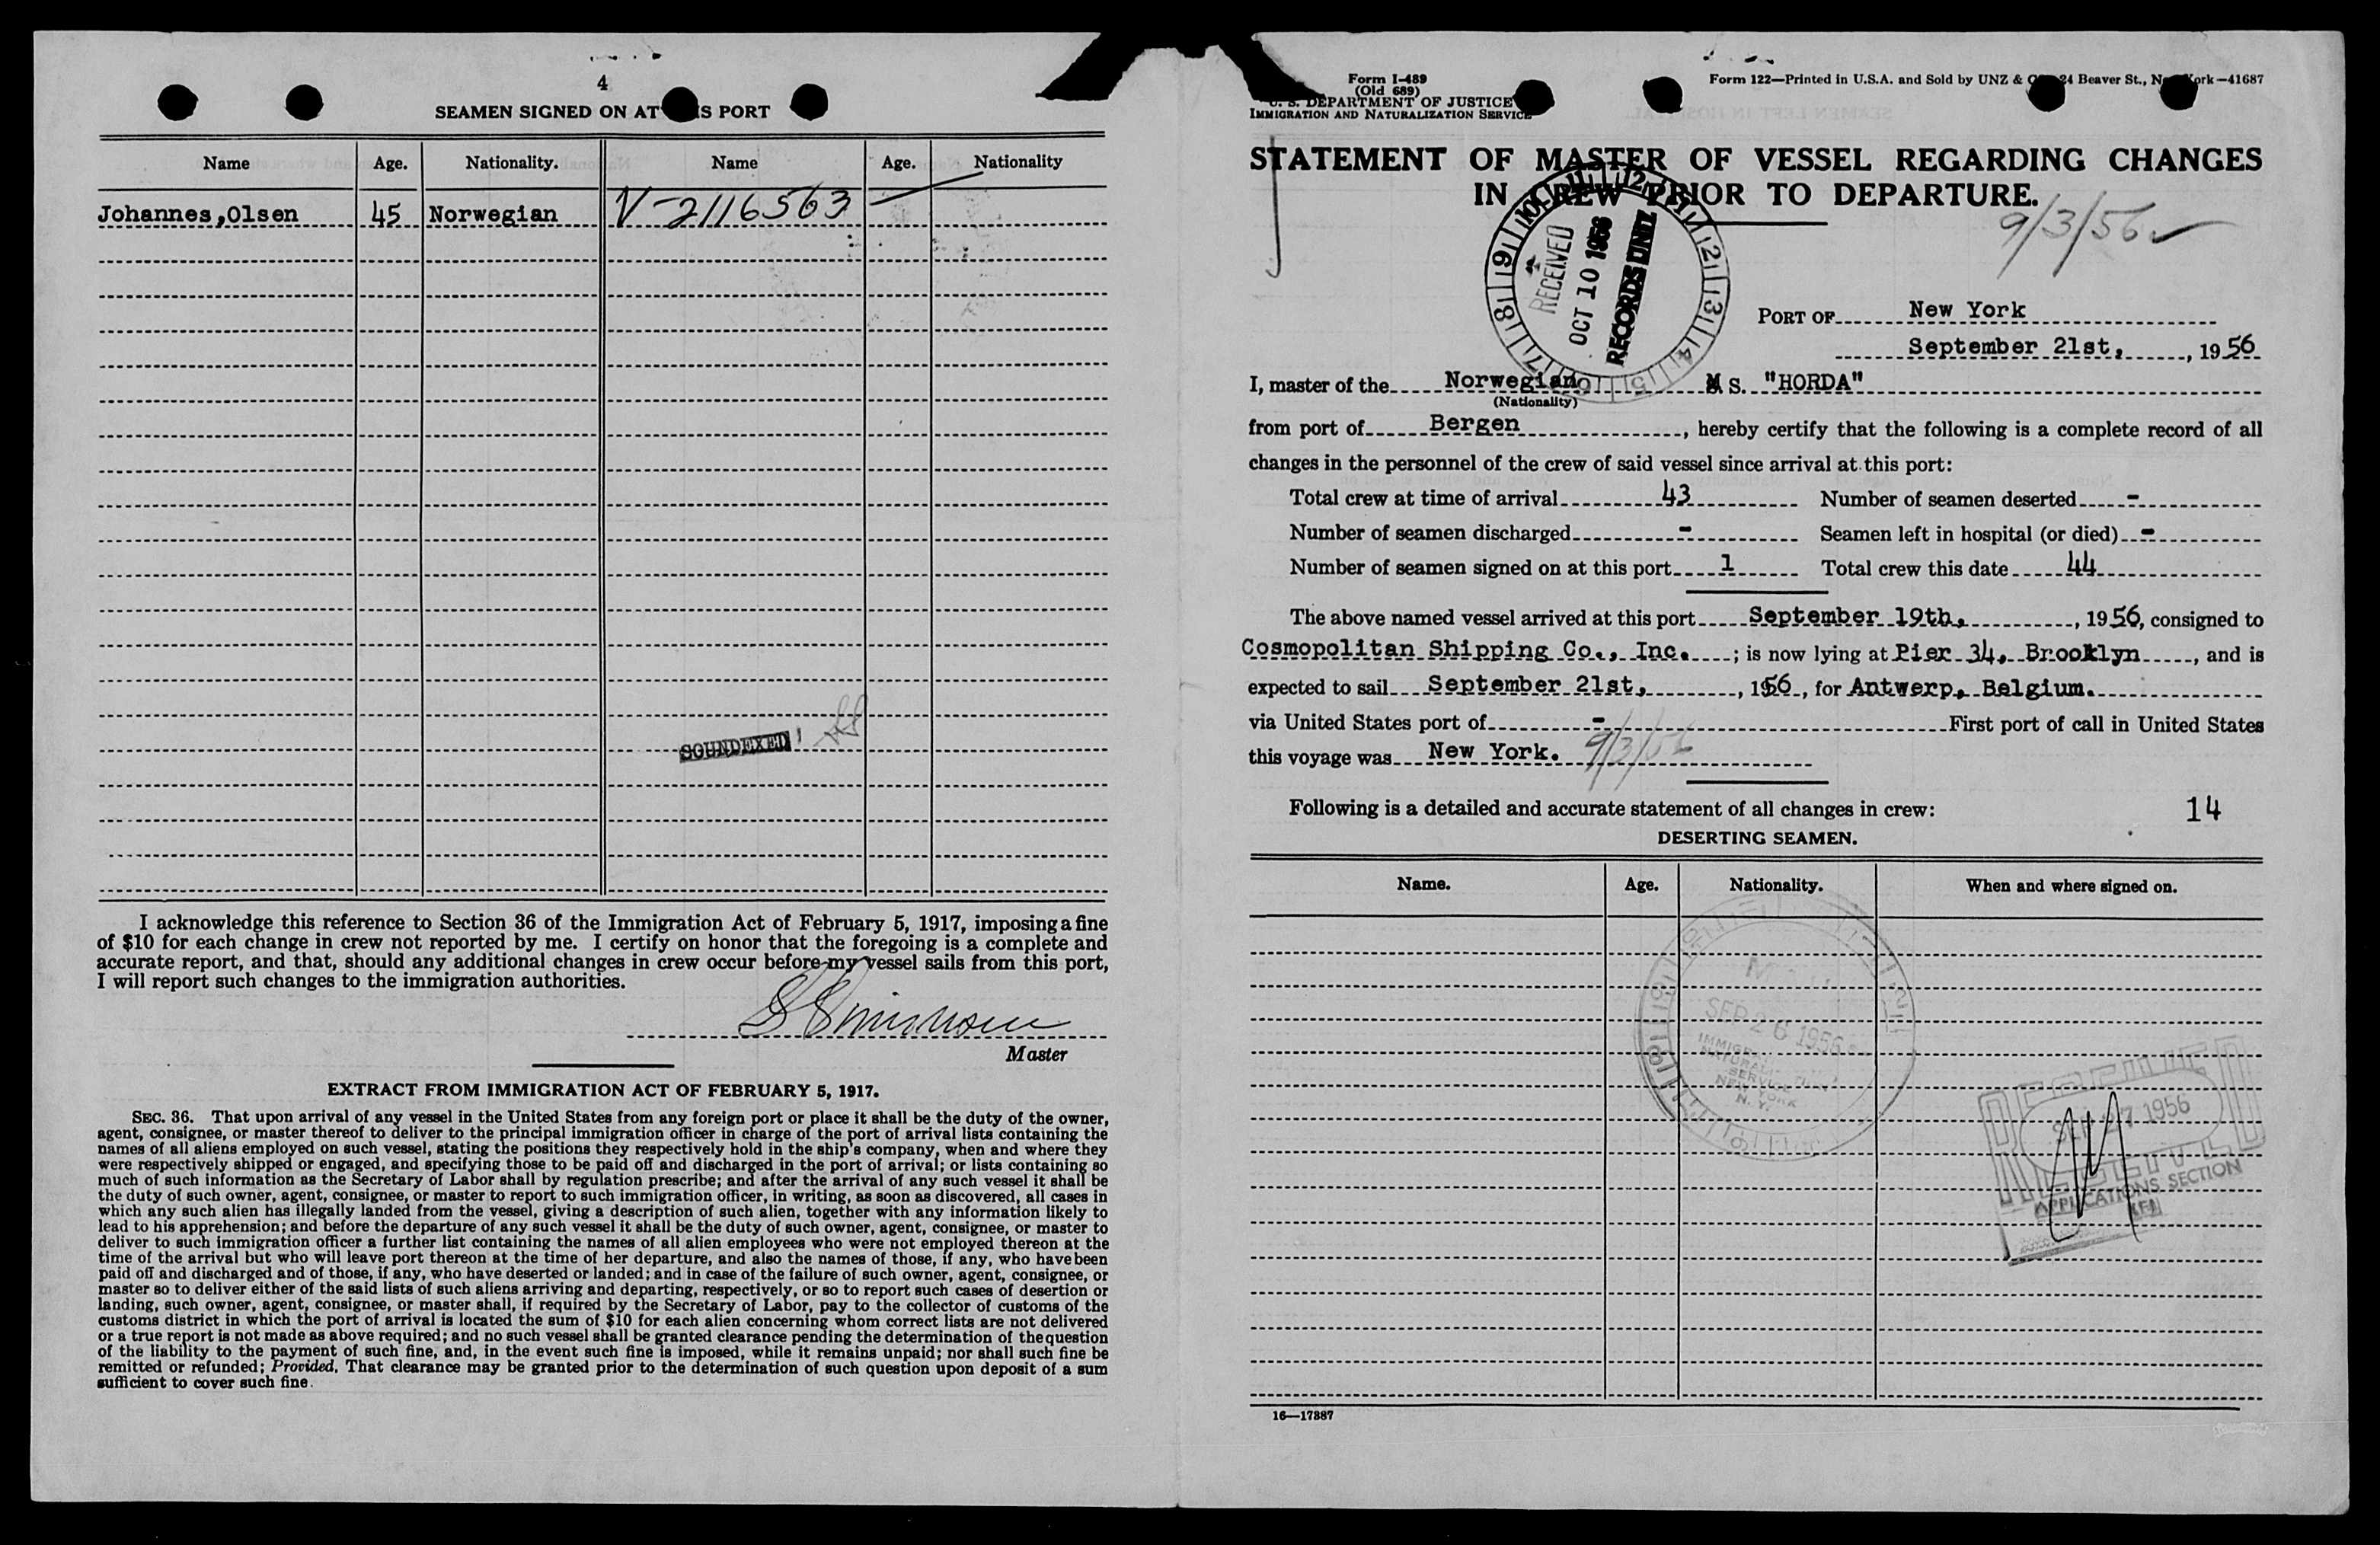 4
SEAMEN SIGNED ON AT THIS PORT
Name Age. Nationality. Name Age. Nationality
Johannes,Olsen 45 Norwegian V-2116563
SOUNDEXED
I acknowledge this reference to Section 36 of the Immigration Act of February 5, 1917, imposing a fine
of $10 for each change in crew not reported by me. I certify on honor that the foregoing is a complete and
accurate report, and that, should any additional changes in crew occur before my vessel sails from this port,
I will report such changes to the immigration authorities.
Master
EXTRACT FROM IMMIGRATION ACT OF FEBRUARY 5, 1917.
SEC. 36. That upon arrival of any vessel in the United States from any foreign port or place it shall be the duty of the owner,
agent, consignee, or master thereof to deliver to the principal immigration officer in charge of the port of arrival lists containing the
names of all aliens employed on such vessel, stating the positions they respectively hold in the ship's company, when and where they
were respectively shipped or engaged, and specifying those to be paid off and discharged in the port of arrival; or lists containing so
much of such information as the Secretary of Labor shall by regulation prescribe; and after the arrival of any such vessel it shall be
the duty of such owner, agent, consignee, or master to report to such immigration officer, in writing, as soon as discovered, all cases in
which any such alien has illegally landed from the vessel, giving a description of such alien, together with any information likely to
lead to his apprehension; and before the departure of any such vessel it shall be the duty of such owner, agent, consignee, or master to
deliver to such immigration officer a further list containing the names of all alien employees who were not employed thereon at the
time of the arrival but who will leave port thereon at the time of her departure, and also the names of those, if any, who have been
paid off and discharged and of those, if any, who have deserted or landed; and in case of the failure of such owner, agent, consignee, or
master so to deliver either of the said lists of such aliens arriving and departing, respectively, or so to report such cases of desertion or
landing, such owner, agent, consignee, or master shall, if required by the Secretary of Labor, pay to the collector of customs of the
customs district in which the port of arrival is located the sum of $10 for each alien concerning whom correct lists are not delivered
or a true report is not made as above required; and no such vessel shall be granted clearance pending the determination of the question
of the liability to the payment of such fine, and, in the event such fine is imposed, while it remains unpaid; nor shall such fine be
remitted or refunded; Provided, That clearance may be granted prior to the determination of such question upon deposit of a sum
sufficient to cover such fine.
Form I-489
(Old 689)
U. S. DEPARTMENT OF JUSTICE
IMMIGRATION AND NATURALIZATION SERVICE
Form 122—Printed in U.S.A. and Sold by UNZ & Co., 24 Beaver St., New York—41687
STATEMENT OF MASTER OF VESSEL REGARDING CHANGES
IN CREW PRIOR TO DEPARTURE.
9/3/56
RECEIVED
OCT 10 1956
RECORDS UNIT
PORT OF New York
September 21st, , 1956
I, master of the Norwegian M S. "HORDA"
(Nationality)
from port of Bergen , hereby certify that the following is a complete record of all
changes in the personnel of the crew of said vessel since arrival at this port:
Total crew at time of arrival 43 Number of seamen deserted -
Number of seamen discharged - Seamen left in hospital (or died) -
Number of seamen signed on at this port 1 Total crew this date 44
The above named vessel arrived at this port September 19th, , 1956, consigned to
Cosmopolitan Shipping Co., Inc. ; is now lying at Pier 34, Brooklyn , and is
expected to sail September 21st, , 1956, for Antwerp, Belgium.
via United States port of - First port of call in United States
this voyage was New York. 9/3/56
Following is a detailed and accurate statement of all changes in crew: 14
DESERTING SEAMEN.
Name. Age. Nationality. When and where signed on.
SEP 26 1956
IMMIGRATION
NATURALIZATION
SERVICE
NEW YORK
N. Y.
RECEIVED
SEP 27 1956
APPLICATIONS SECTION
16—17387